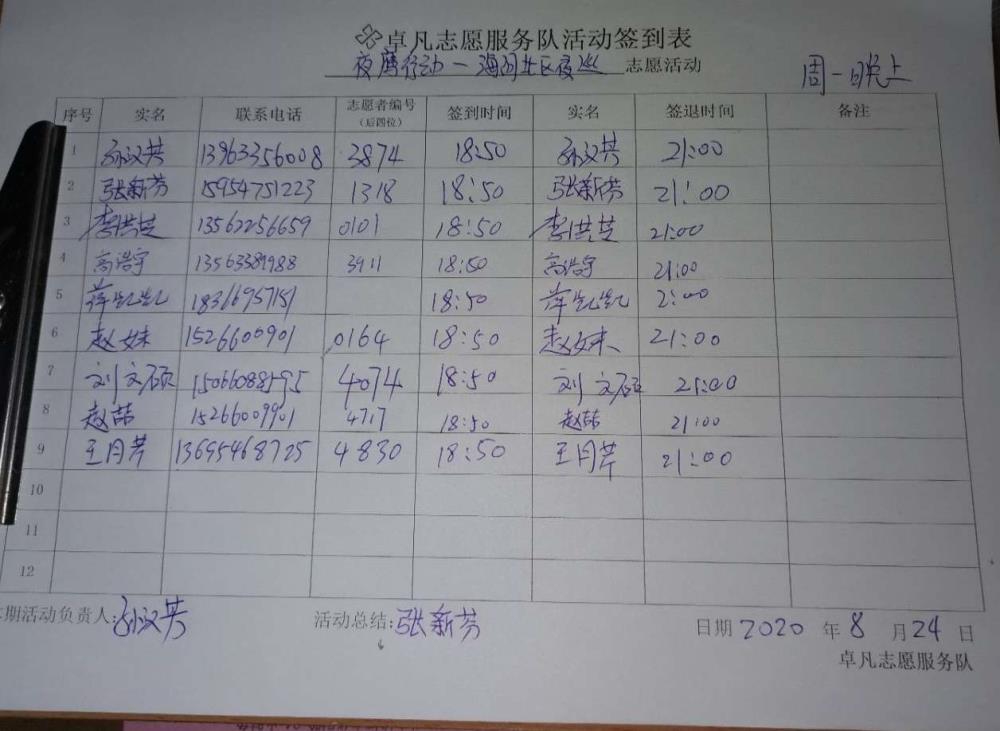 卓凡志愿服务队活动签到表
夜鹰行动一海河社区夜巡 志愿活动
周一晚上
序号 实名 联系电话 志愿者编号（后四位） 签到时间 实名 签退时间 备注
1 孙汉英 13963356008 3874 18:50 孙汉英 21:00
2 张新芳 15954751223 1318 18:50 张新芳 21:00
3 李洪芝 13562256659 0101 18:50 李洪芝 21:00
4 高浩宇 13563389988 3911 18:50 高浩宇 21:00
5 薛凯凯 18366957151 18:50 薛凯凯 2:00
6 赵妹 1526600901 0164 18:50 赵妹 21:00
7 刘文硕 15066088595 4074 18:50 刘文硕 21:00
8 赵喆 15266009901 4717 18:50 赵喆 21:00
9 王月芹 13695468725 4830 18:50 王月芹 21:00
10
11
12
期活动负责人:孙汉英 活动总结:张新芳 日期 2020 年 8 月 24 日
卓凡志愿服务队